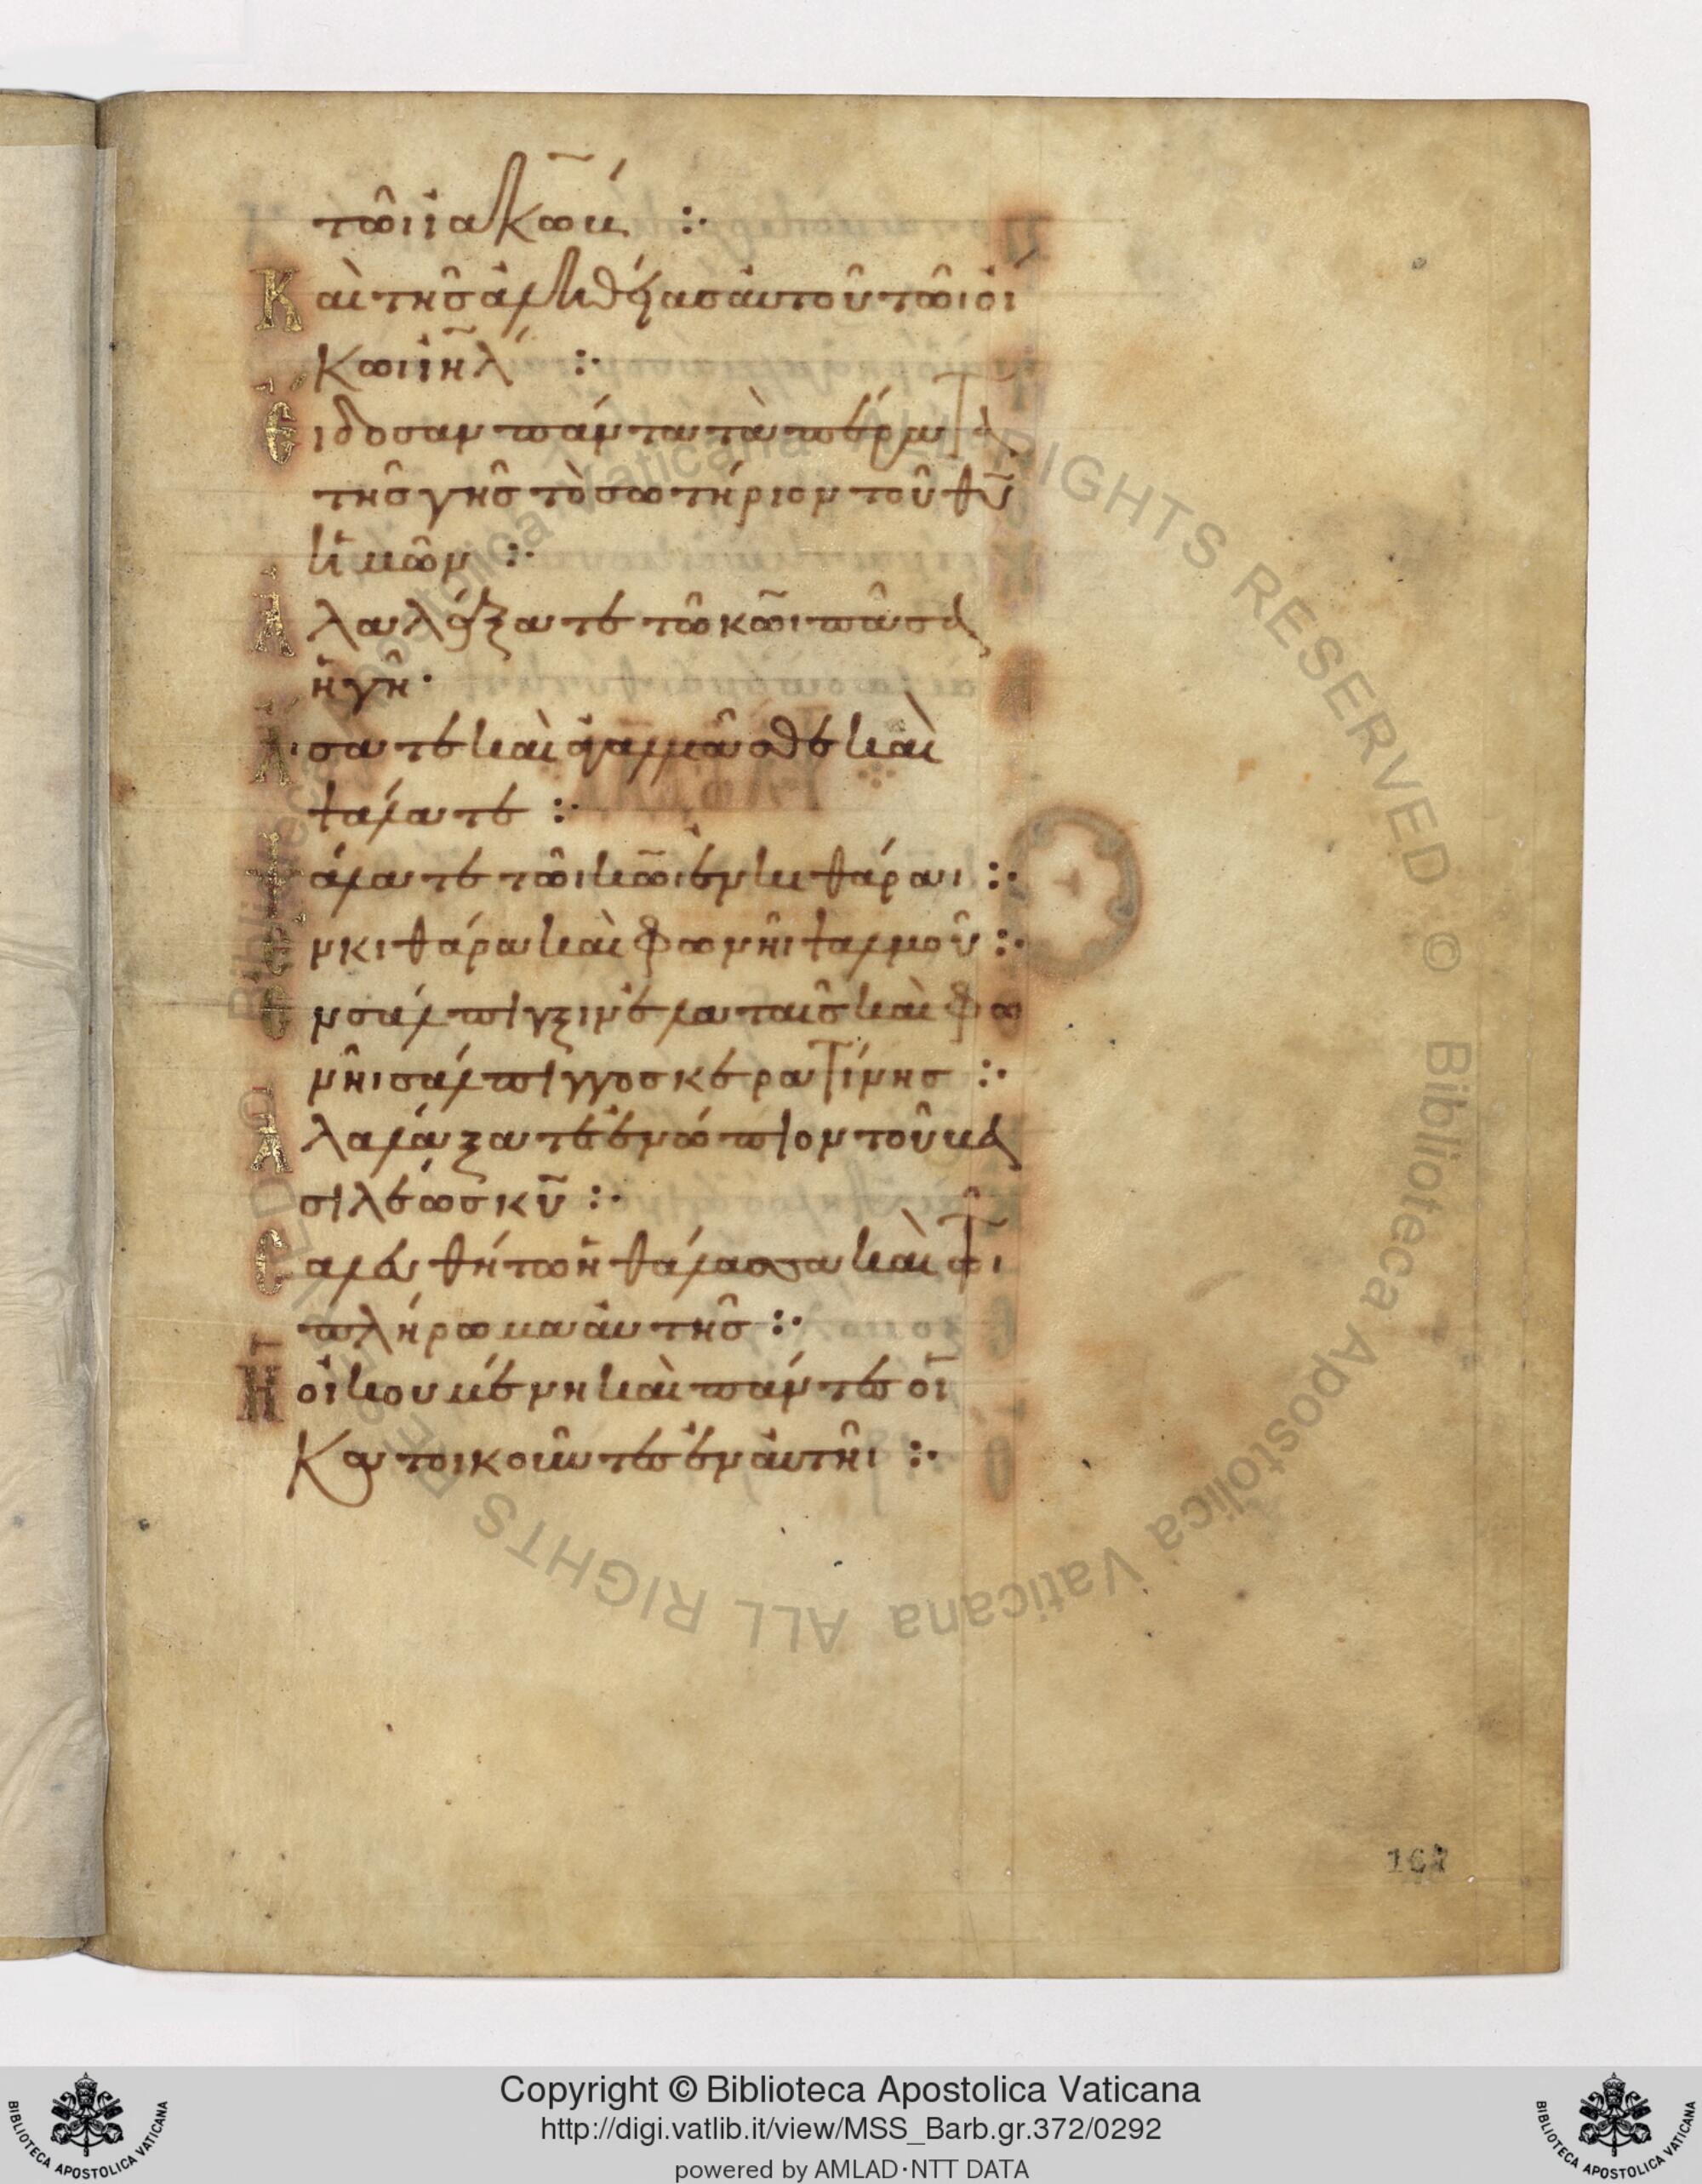 τῶι ἰακώβ :·
Καὶ τῆς ἀληθείας αὐτοῦ τῶι οἴ
κωι ἰη̅λ :·
Εἴδοσαν πάντα τὰ πέρατα
τῆς γῆς τὸ σωτήριον τοῦ θυ̅
ἡμῶν :·
Ἀλαλάξατε τῶ κω̅ι πᾶσα
ἡ γῆ·
Ἄισατε καὶ ἀγαλλιᾶσθε καὶ
ψάλατε :·
Ψάλατε τῶι κω̅ι ἐν κιθάραι :·
Ἐν κιθάρα καὶ φωνῆι ψαλμοῦ :·
Ἐν σάλπιγξιν ἐλαταῖς καὶ φω
νῆι σάλπιγγος κερατίνης :·
Ἀλαλάξατε ἐνώπιον τοῦ βα
σιλέως κυ̅ :·
Σαλευθήτω ἡ θάλασσα καὶ τὸ
πλήρωμα αὐτῆς :·
Ἡ οἰκουμένη καὶ πάντες οἱ
κατοικοῦντες ἐν αὐτῆι :·
167
Copyright © Biblioteca Apostolica Vaticana
http://digi.vatlib.it/view/MSS_Barb.gr.372/0292
powered by AMLAD·NTT DATA
BIBLIOTECA APOSTOLICA VATICANA
BIBLIOTECA APOSTOLICA VATICANA